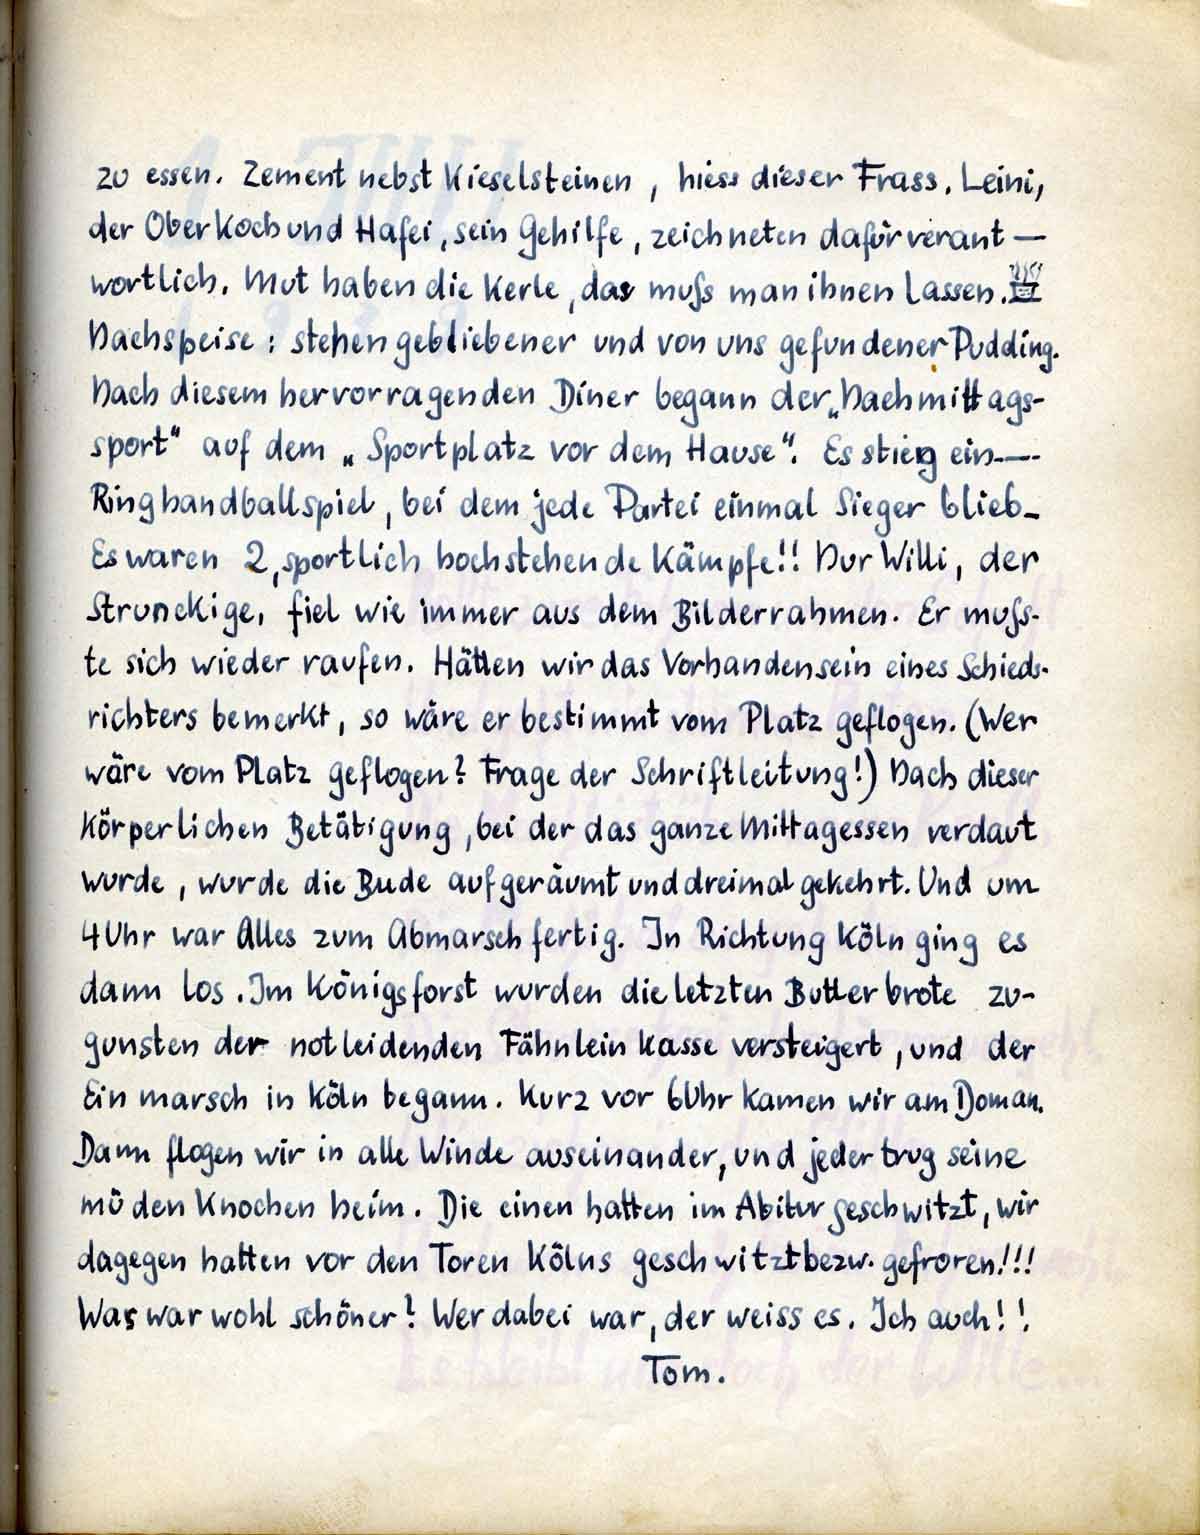 zu essen. Zement nebst Kieselsteinen, hiess dieser Frass. Leini,
der Oberkoch und Hafei, sein Gehilfe, zeichneten dafür verant-
wortlich. Mut haben die Kerle, das muſs man ihnen lassen.
Nachspeise: stehengebliebener und von uns gefundener Pudding.
Nach diesem hervorragenden Diner begann der „Nachmittags-
sport“ auf dem „Sportplatz vor dem Hause“. Es stieg ein
Ringhandballspiel, bei dem jede Partei einmal Sieger blieb.
Es waren 2, sportlich hochstehende Kämpfe!! Nur Willi, der
Strunckige, fiel wie immer aus dem Bilderrahmen. Er muſs-
te sich wieder raufen. Hätten wir das Vorhandensein eines Schieds-
richters bemerkt, so wäre er bestimmt vom Platz geflogen. (Wer
wäre vom Platz geflogen? Frage der Schriftleitung!) Nach dieser
körperlichen Betätigung, bei der das ganze Mittagessen verdaut
wurde, wurde die Bude aufgeräumt und dreimal gekehrt. Und um
4 Uhr war Alles zum Abmarsch fertig. In Richtung Köln ging es
dann los. Im Königsforst wurden die letzten Butterbrote zu-
gunsten der notleidenden Fähnleinkasse versteigert, und der
Einmarsch in Köln begann. Kurz vor 6 Uhr kamen wir am Doman.
Dann flogen wir in alle Winde auseinander, und jeder trug seine
müden Knochen heim. Die einen hatten im Abitur geschwitzt, wir
dagegen hatten vor den Toren Kölns geschwitzt bezw. gefroren!!!
Was war wohl schöner? Wer dabei war, der weiss es. Ich auch!!
Tom.